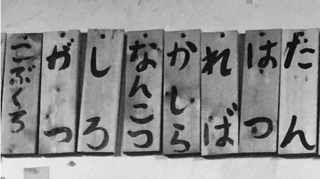 たん
はつ
れば
かしら
なんこつ
しろ
がつ
こぶくろ